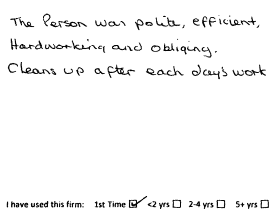 The Person was polite, efficient,
Hardworking and obliging.
Cleans up after each day's work
I have used this firm: 1st Time ☑ <2 yrs ☐ 2-4 yrs ☐ 5+ yrs ☐